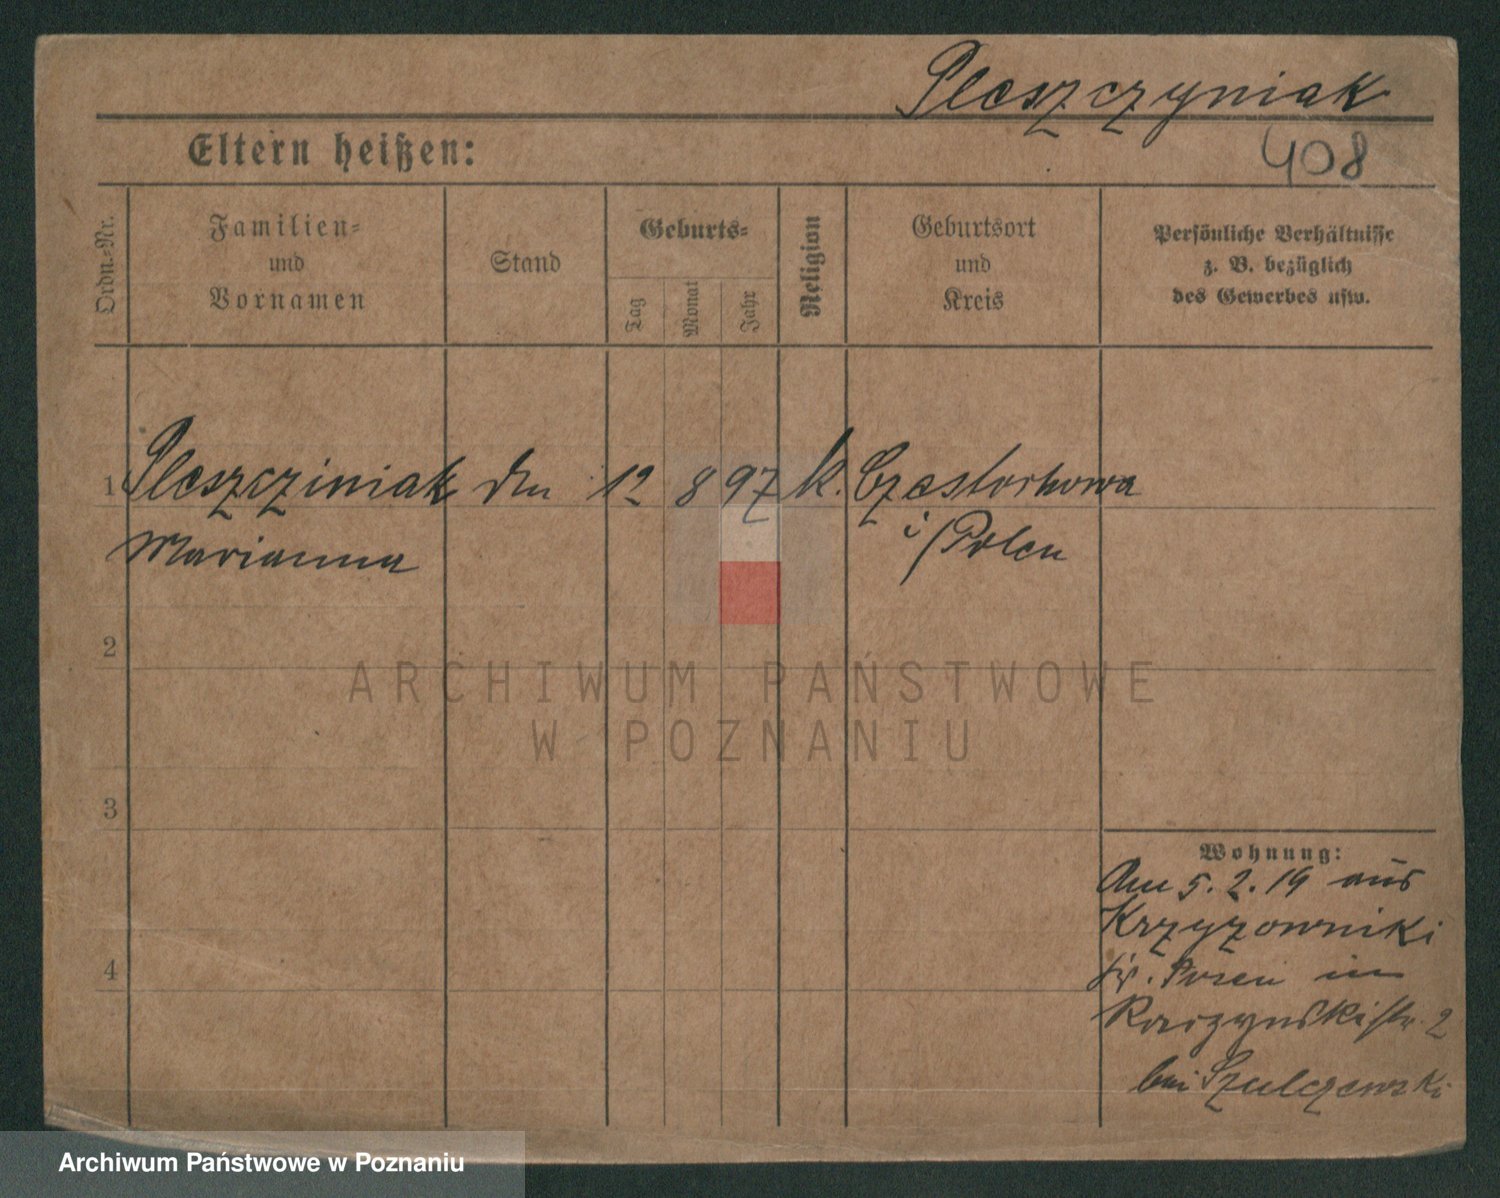 Pleszczyniak
408
Eltern heißen:
Ordn.-Nr.
Familien-
und
Vornamen
Stand
Geburts-
Tag
Monat
Jahr
Religion
Geburtsort
und
Kreis
Persönliche Verhältnisse
z. B. bezüglich
des Gewerbes usw.
1 Pleszcziniak 12 8 97 k. Czestochowa
Marianna i/Polen
ARCHIWUM PAŃSTWOWE
W POZNANIU
2
3
4
Wohnung:
Am 5. 2. 19 aus
Krzyzowniki
Kr. Posen in
Raczynskistr. 2
bei Szulczewski
Archiwum Państwowe w Poznaniu